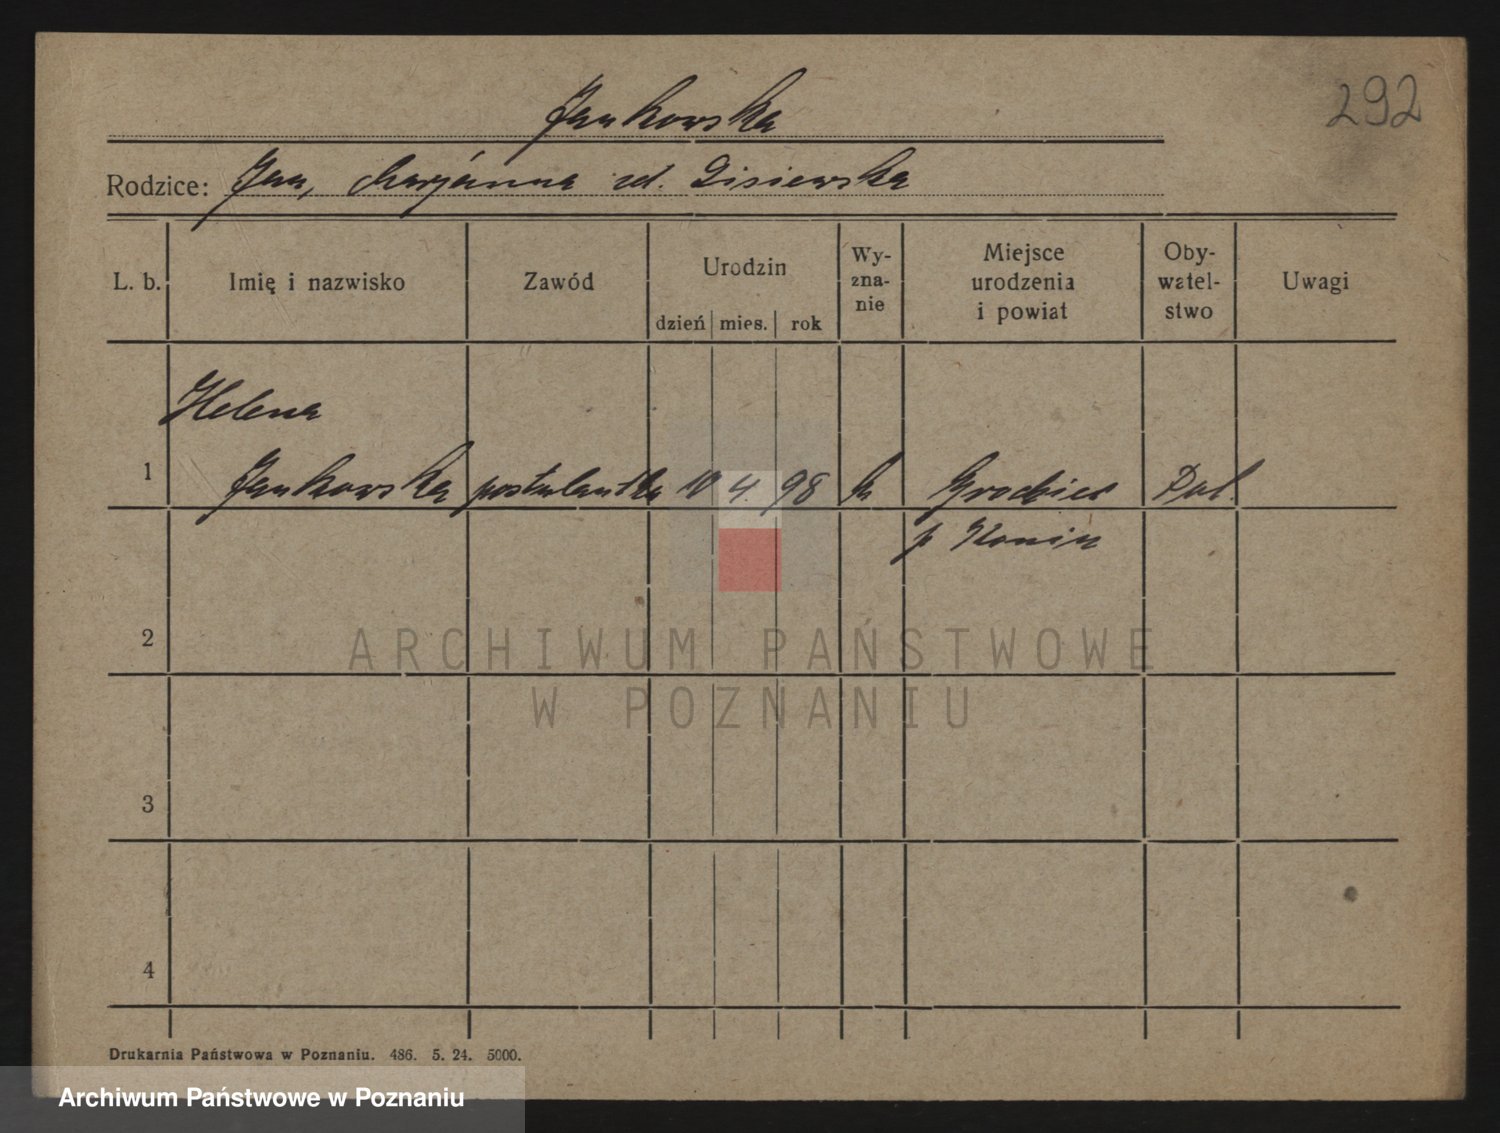 292
Jankowska
Rodzice: Jan, Maryanna zd. Lisiewska
L. b.
Imię i nazwisko
Zawód
Urodzin
dzień mies. rok
Wy-
zna-
nie
Miejsce
urodzenia
i powiat
Oby-
watel-
stwo
Uwagi
Helena
1 Jankowska postulantka 10 4. 98 k Grodziec Pol.
p Konin
2
3
4
ARCHIWUM PAŃSTWOWE
W POZNANIU
Drukarnia Państwowa w Poznaniu. 486. 5. 24. 5000.
Archiwum Państwowe w Poznaniu